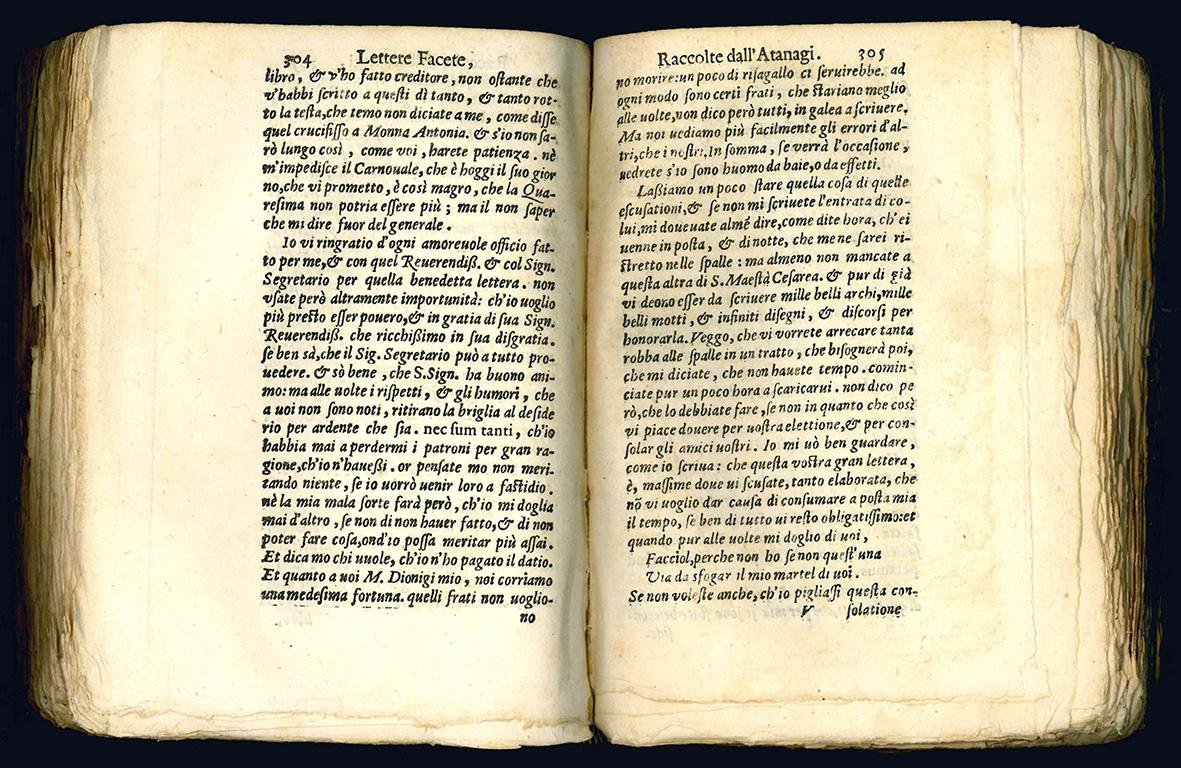 304 Lettere Facete,
libro, & v'ho fatto creditore, non ostante che
v'habbi scritto a questi dì tanto, & tanto rot-
to la testa, che temo non diciate a me, come disse
quel crucifisso a Monna Antonia. & s'io non sa-
rò lungo così, come voi, harete patienza. nè
m'impedisce il Carnouale, che è hoggi il suo gior
no, che vi prometto, è così magro, che la Qua-
resima non potria essere più; ma il non saper
che mi dire fuor del generale.
Io vi ringratio d'ogni amoreuole officio fat-
to per me, & con quel Reuerendiss. & col Sign.
Segretario per quella benedetta lettera. non
vsate però altramente importunità: ch'io uoglio
più presto esser pouero, & in gratia di sua Sign.
Reuerendiß. che ricchißimo in sua disgratia.
se ben sà, che il Sig. Segretario può a tutto pro-
uedere. & sò bene, che S. Sign. ha buono ani-
mo: ma alle uolte i rispetti, & gli humori, che
a uoi non sono noti, ritirano la briglia al deside
rio per ardente che sia. nec sum tanti, ch'io
habbia mai a perdermi i patroni per gran ra-
gione, ch'io n'haueßi. or pensate mo non meri-
tando niente, se io uorrò uenir loro a fastidio.
nè la mia mala sorte farà però, ch'io mi doglia
mai d'altro, se non di non hauer fatto, & di non
poter fare cosa, ond'io possa meritar più assai.
Et dica mo chi vuole, ch'io n'ho pagato il datio.
Et quanto a uoi M. Dionigi mio, noi corriamo
una medesima fortuna. quelli frati non uoglio-
no
Raccolte dall'Atanagi. 305
no morire: un poco di risagallo ci seruirebbe. ad
ogni modo sono certi frati, che stariano meglio
alle uolte, non dico però tutti, in galea a scriuere.
Ma noi uediamo più facilmente gli errori d'al-
tri, che i nostri. In somma, se verrà l'occasione,
uedrete s'io sono huomo da baie, o da effetti.
Laßiamo un poco stare quella cosa di quelle
escusationi, & se non mi scriuete l'entrata di co-
lui, mi doueuate almẽ dire, come dite hora, ch'ei
uenne in posta, & di notte, che me ne sarei ri-
stretto nelle spalle: ma almeno non mancate a
questa altra di S. Maestà Cesarea. & pur di già
vi deono esser da scriuere mille belli archi, mille
belli motti, & infiniti disegni, & discorsi per
honorarla. Veggo, che vi vorrete arrecare tanta
robba alle spalle in un tratto, che bisognerà poi,
che mi diciate, che non hauete tempo. comin-
ciate pur un poco hora a scaricarui. non dico pe
rò, che lo debbiate fare, se non in quanto che così
vi piace douere per uostra elettione, & per con-
solar gli amici uostri. Io mi uò ben guardare,
come io scriua: che questa vostra gran lettera,
è, massime doue ui scusate, tanto elaborata, che
nõ vi uoglio dar causa di consumare a posta mia
il tempo, se ben di tutto ui resto obligatissimo: et
quando pur alle uolte mi doglio di uoi,
Facciol, perche non ho se non quest'una
Via da sfogar il mio martel di uoi.
Se non voleste anche, ch'io pigliassi questa con-
V solatione